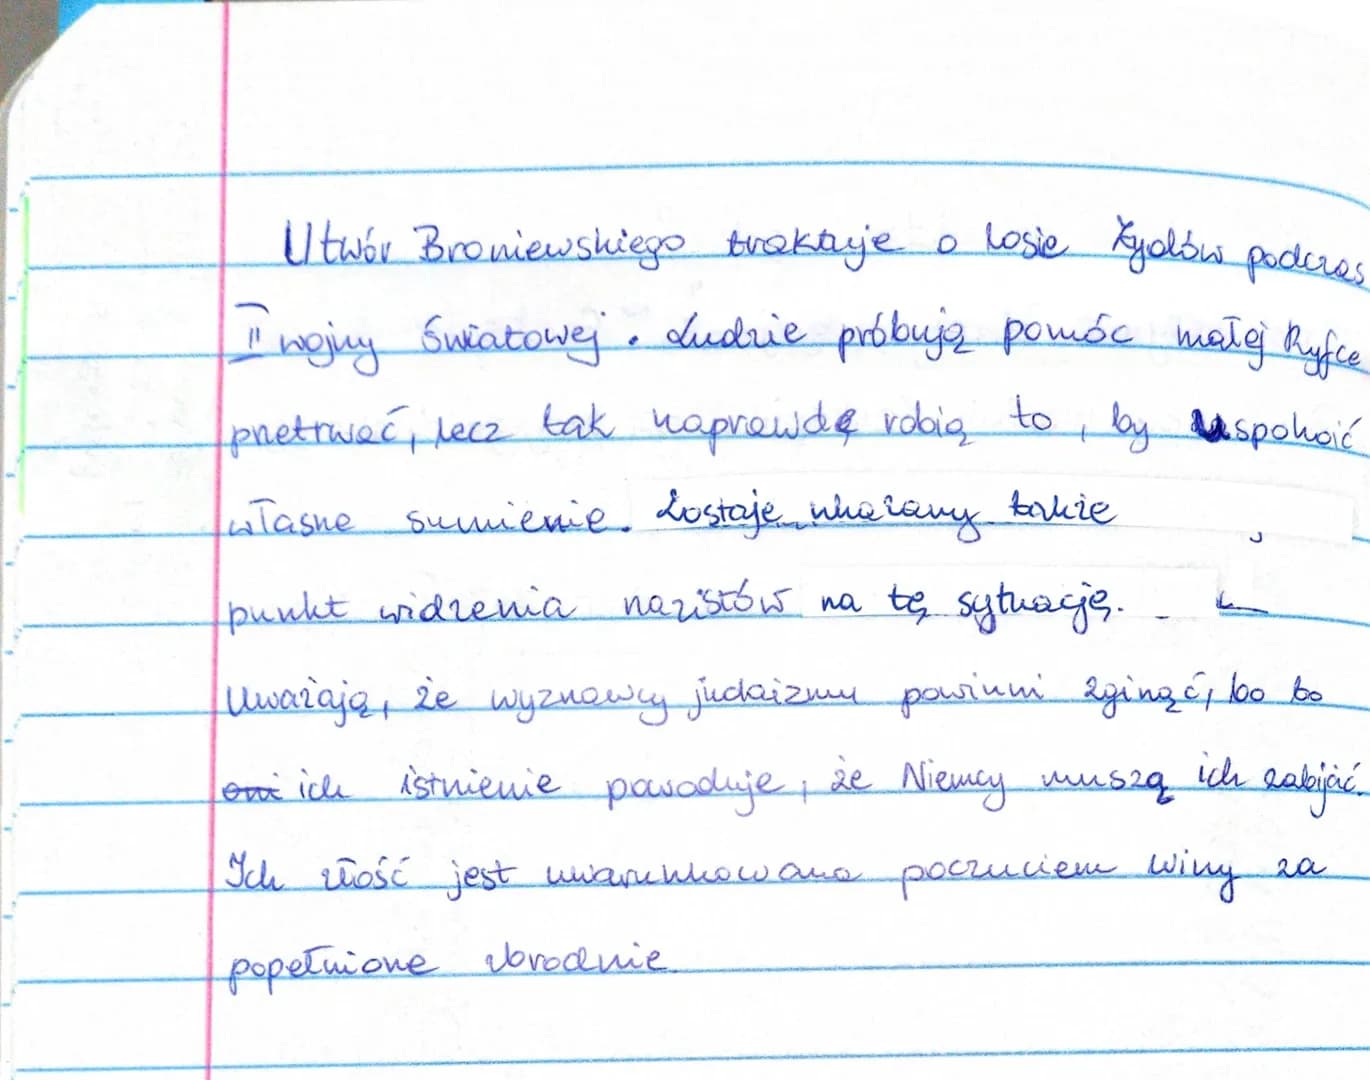 Utwór Broniewskiego traktuje o losie Żydów podczas
II wojny światowej. Ludzie próbują pomóc małej Ryfce
przetrwać, lecz tak naprawdę robią to, by uspokoić
własne sumienie. Zostaje ukazany także
punkt widzenia nazistów na tę sytuację.
Uważają, że wyznawcy judaizmu powinni zginąć, bo to
oni ich istnienie powoduje, że Niemcy muszą ich zabijać.
Ich złość jest uwarunkowana poczuciem winy za
popełnione zbrodnie